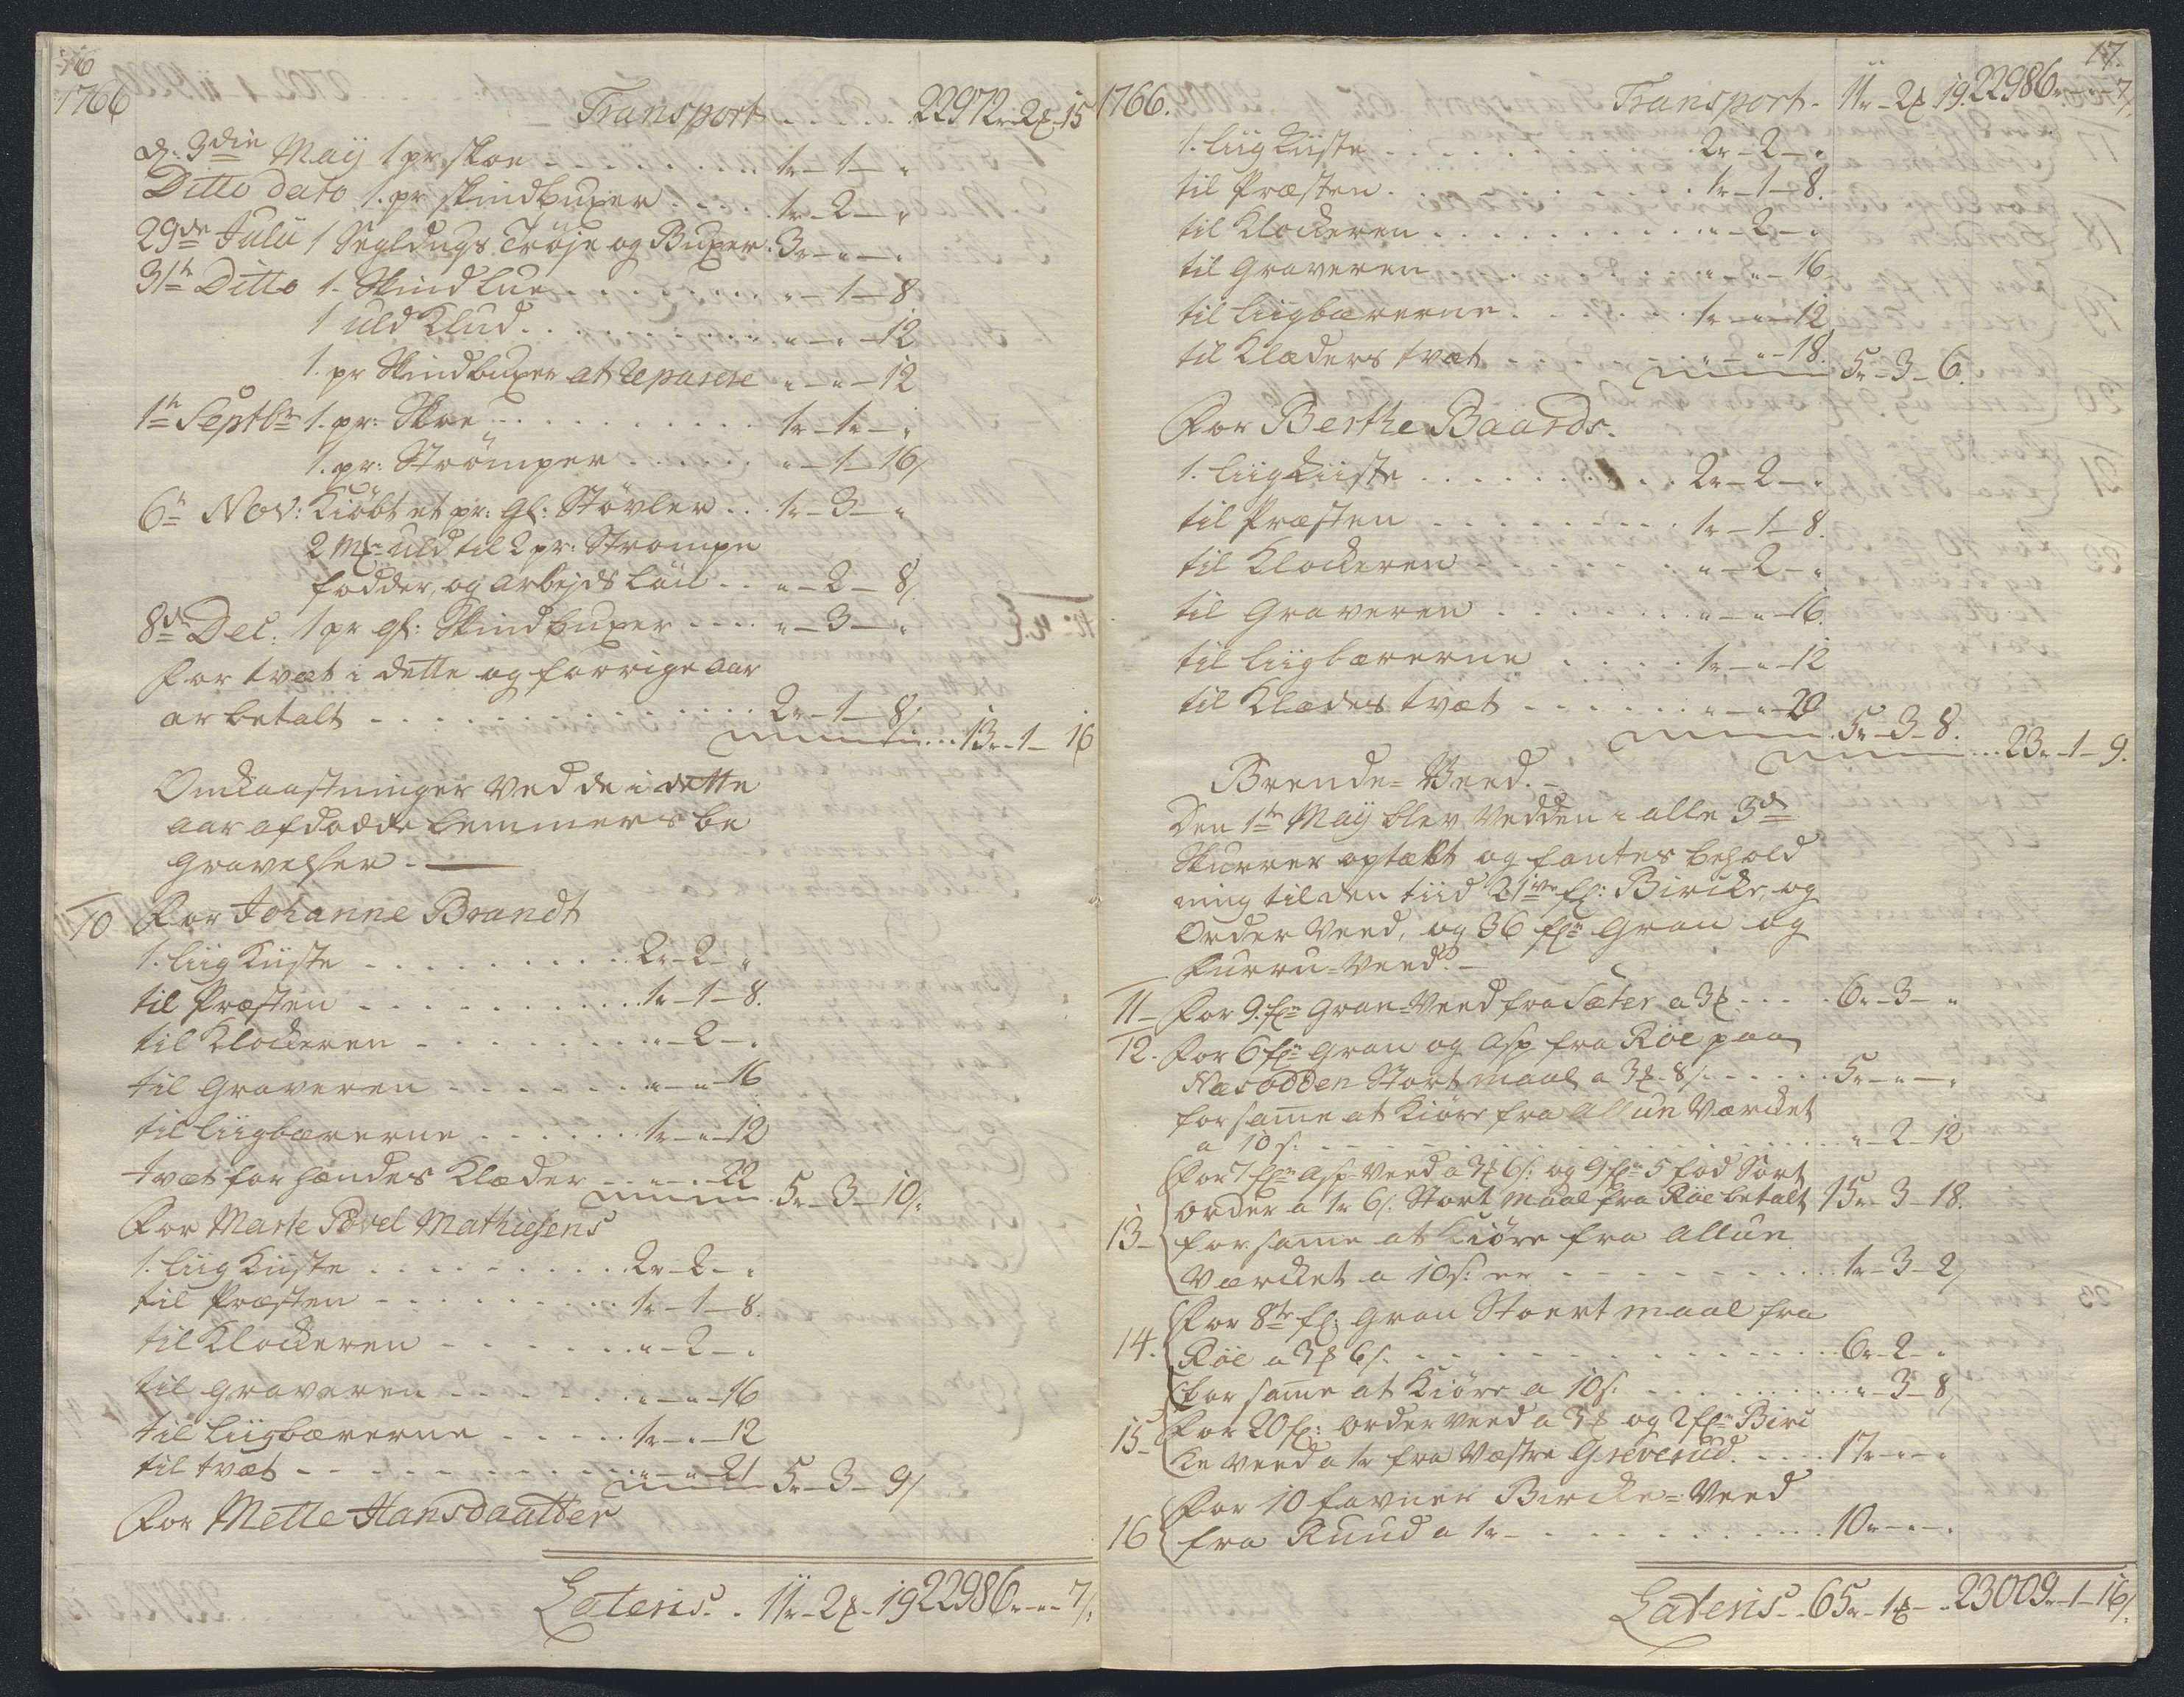 16
1766
Transport . . . . . 22972r-2ꝑ-15
d: 3die Maÿ 1 pr skoe - - - - - - - - 1r-1-"
Ditto dato 1. pr skindbuxer . . . . 1r-2-"
29de Julii 1 Segldugs Trøje og Buxer. 3r-"-"
31te Ditto 1. Skind lue . . . . . . . "-1-8
1 uld Klud . . . . . . . . "-"-12
1. pr Skindbuxer at Reparere "-"-12
1te Septbr 1. pr: Skoe . . . . . . . 1r-1-"
1. pr: Strömper . . . . . "-1-16/
6te Nov: Kiöbt et pr: gl: Støvler . . . 1r-3-"
2 Mkr uld til 2 pr: Strømpe
fødder, og arbejds Løn . . "-2-8/
8de Dec: 1 pr gl: Skindbuxer - - - - "-3-"
for tvæt i dette og forrige Aar
er betalt - - - - - - - - - - - 2r-1-8/
13r-1-16
Omkaastninger Ved de i dette
Aar afdøde Lemmers be
gravelser. -
10 For Johanne Brandt
1. liig Kiiste - - - - - - - - 2r-2-"
til Præsten - - - - - - - - 1r-1-8.
til Klockeren - - - - - - - "-2-"
til Graveren - - - - - - - "-"-16
til Liigbærerne - - - - - - 1r-"-12
tvæt for hendes Klæder - - - "-"-22
5r-3-10/:
For Marte Povel Mathiesens
1. liig Kiiste - - - - - - - - 2r-2-"
til Præsten - - - - - - - - 1r-1-8.
til Klockeren - - - - - - - "-2-"
til Graveren - - - - - - - "-"-16
til Liigbærerne - - - - - - 1r-"-12
til tvæt - - - - - - - - - - "-"-21
5r-3-9/
For Mette Hansdaatter
Lateris . . 11r-2ꝑ-19 22986r-"-7/:
17.
1766.
Transport - 11r-2ꝑ 19. 22986r-"-7/.
1. liig Kiiste . . . . . . . . . . . 2r-2-"
til Præsten . . . . . . . . . . . 1r-1-8.
til Klockeren . . . . . . . . . . "-2-"
til Graveren . . . . . . . . . . "-"-16
til Liigbærerne . . . . . . . 1r-"-12
til Klæders tvæt - - - - - - - "-"-18.
5r-3-6.
For Berthe Baards.
1. liig Kiiste . . . . . . . . . . 2r-2-"
til Præsten - - - - - - - - - 1r-1-8.
til Klockeren - - - - - - - - "-2-"
til Graveren . . . . . . . . "-"-16.
til Liigbærerne . . . . . 1r-"-12
til Klædes tvæt - - - - - - "-"-20
5r-3-8.
23r-1-9.
Brende=Veed. -
Den 1te Maÿ blev Vedden i alle 3de
Skurrer optælt og fantes behold
ning til den tiid 21ive fl: Bircke, og
Order Veed, og 36 flr Gran og
Furru=Veed. -
11- For 9. flr Gran=Veed fra Sæter a 3ꝑ - - - - 6r-3-"
12. For 6 flr Gran og Asp fra Röe paa
Nesodden Stort maal a 3ꝑ-8/. - - - - - 5r-"-"
for same at Kiöre fra Allun Værcket
a 10 s: - - - - - - - - - - - - - "-2-12
For 7 flr Asp=Veed a 3ꝑ 6/: og 9 flr 5 fod Sort
order a 1r 6/. Stort maal fra Röe betalt 15r-3-18.
13- for same at Kiöre fra Allun
Værcket a 10s: er - - - - - - - - - 1r-3-2/
For 8te fl: Gran Stoert maal fra
14. Röe a 3ꝑ 6/. - - - - - - - - - - - - 6r-2-"
for same at Kiöre a 10s: . . . . . . . "-3-8/
15- For 20 fl: order veed a 3ꝑ og 2 flr Birc
ke veed a 1r fra Væstre Greverud. - - - - 17r-"-"
For 10 favner Bircke=Veed
16 fra Ruud a 1r - - - - - - - - - - - 10r-"-"
Lateris - . 65r-1ꝑ-" 23009r-1-16/.